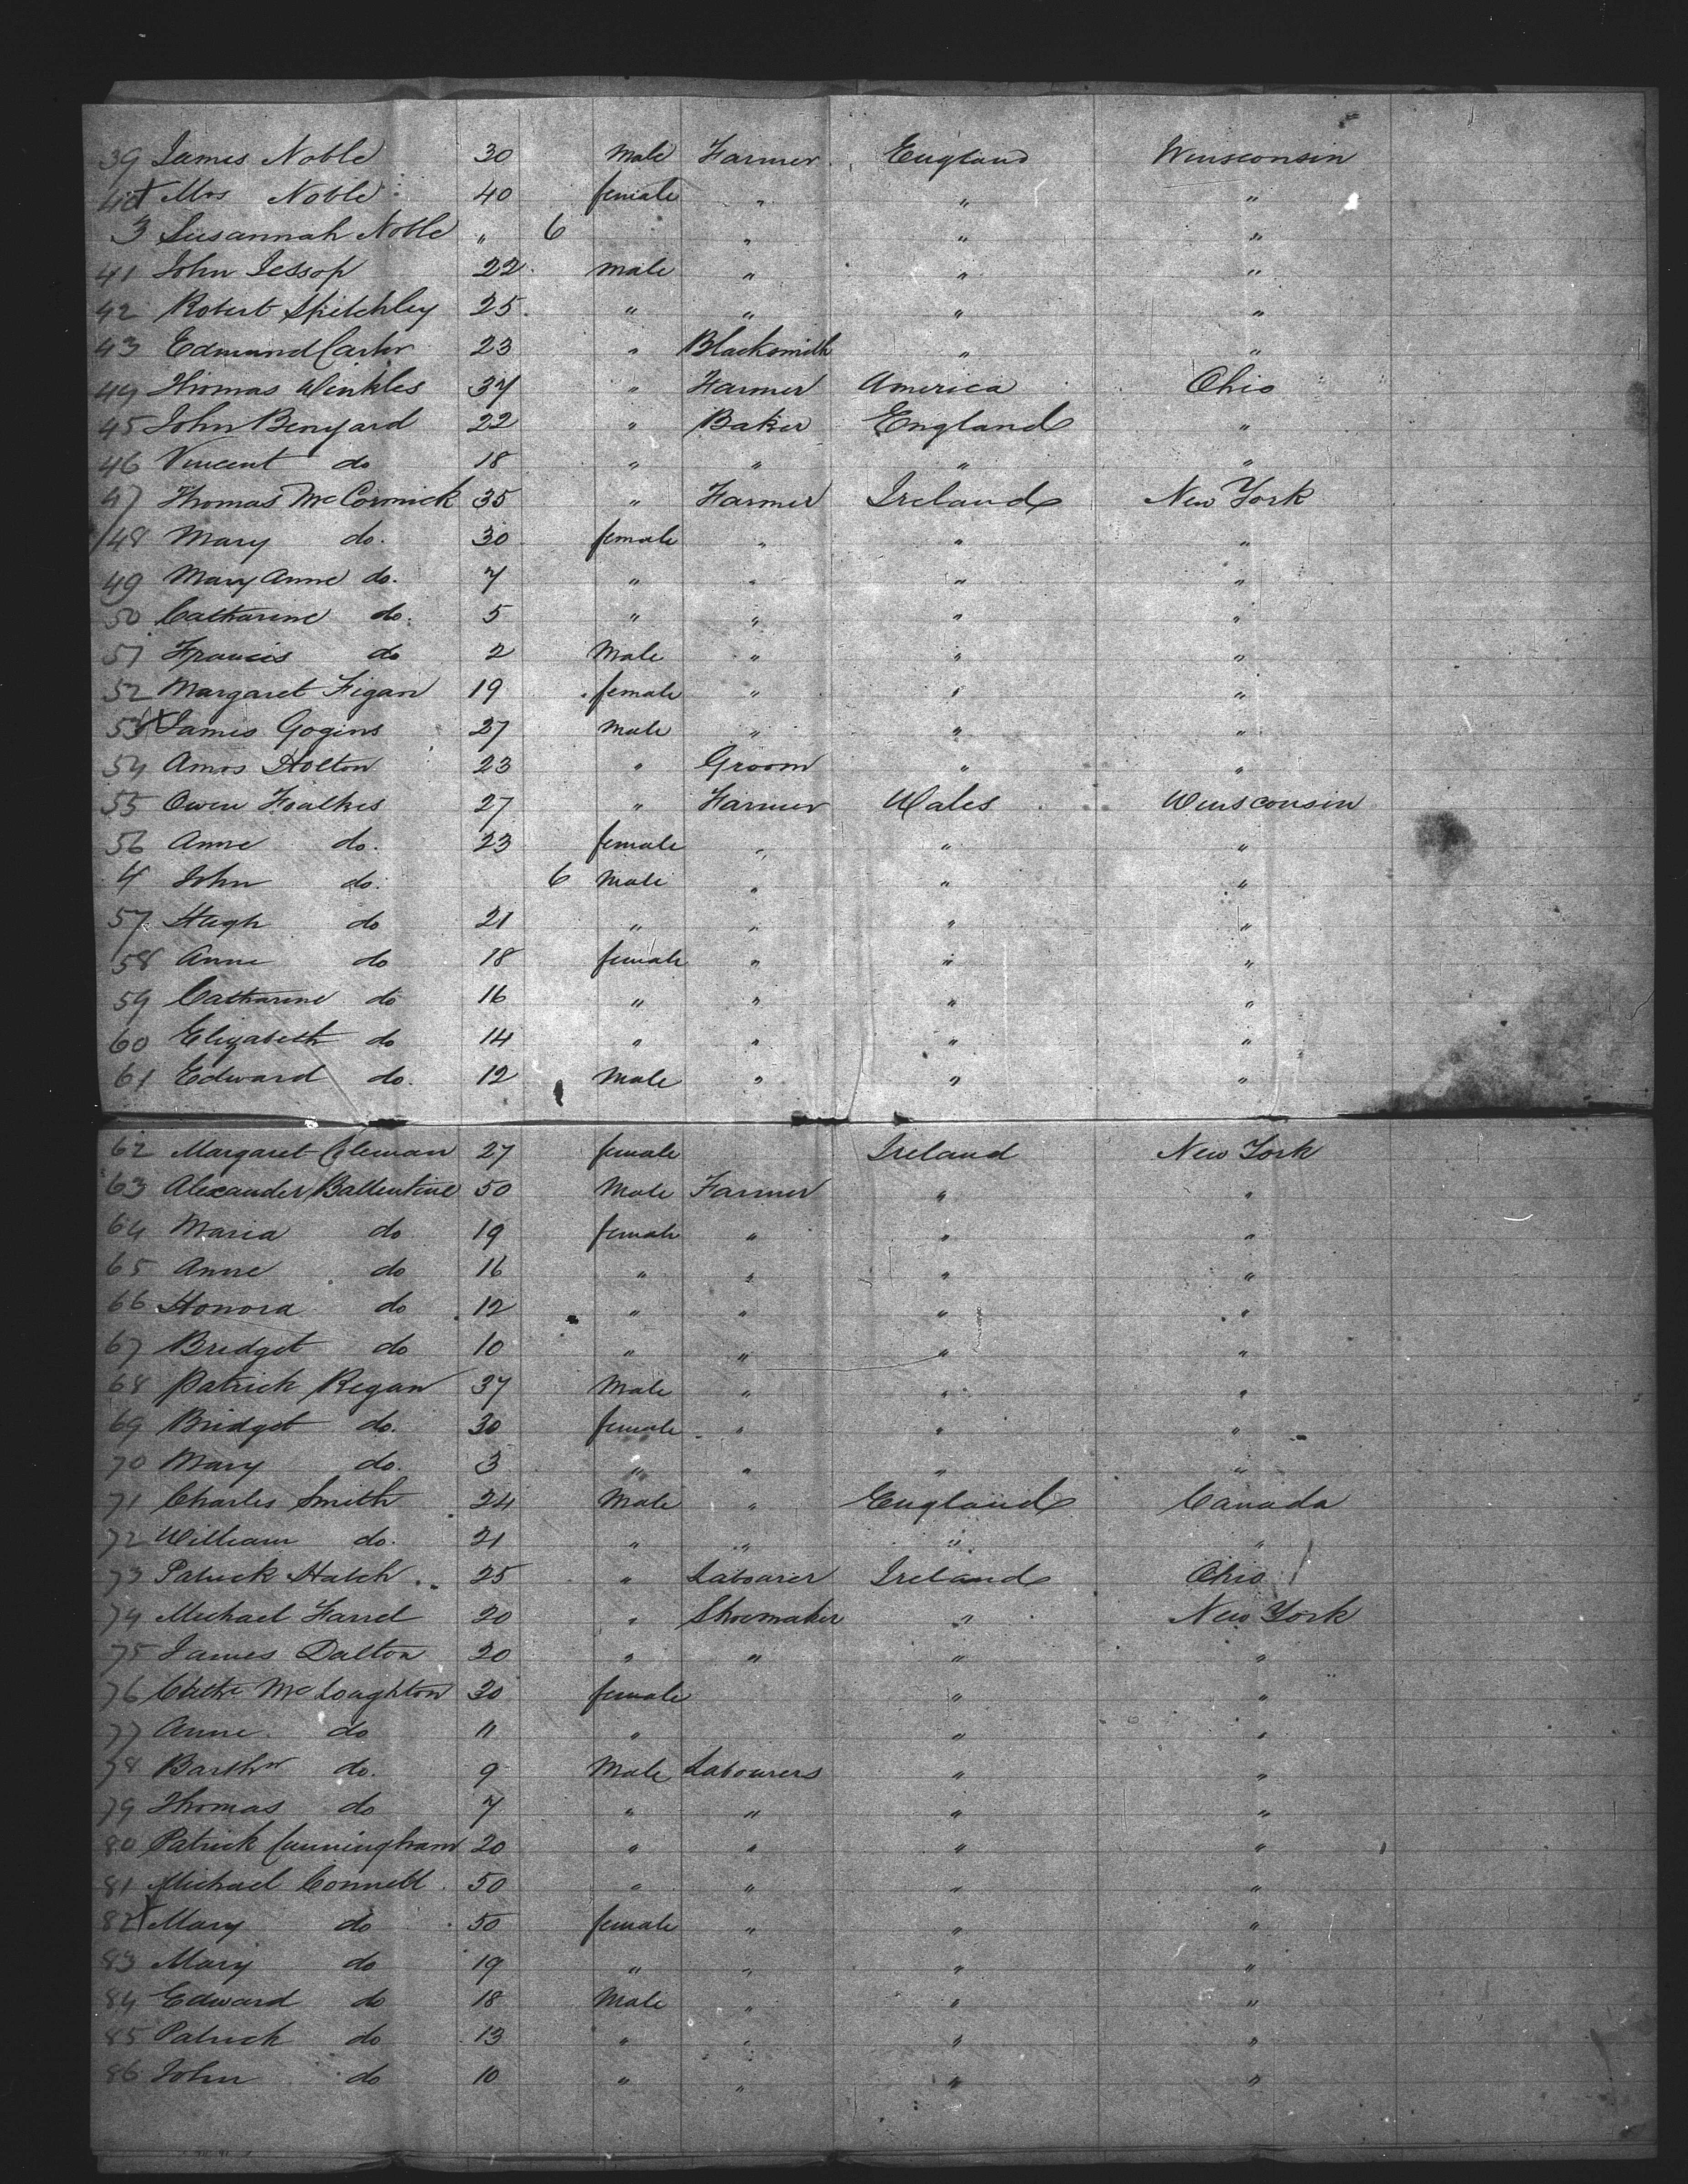 39 James Noble 30 Male Farmer England Winsconsin
40 Mrs Noble 40 female " " "
3 Susannah Noble " 6 " " "
41 John Jessop 22 male " " "
42 Robert Spitchley 25 " " " "
43 Edmund Carter 23 " Blacksmith " "
44 Thomas Winkles 37 " Farmer America Ohio
45 John Benyard 22 " Baker England "
46 Vincent do 18 " " " "
47 Thomas McCormick 35 " Farmer Ireland New York
48 Mary do. 30 female " " "
49 Mary Anne do. 7 " " " "
50 Catharine do. 5 " " " "
51 Francis do 2 Male " " "
52 Margaret Figan 19 female " " "
53 James Gogins 27 Male " " "
54 Amos Holton 23 " Groom " "
55 Owen Foulkes 27 " Farmer Wales Winsconsin
56 Anne do. 23 female " " "
4 John do. 6 Male " " "
57 Hugh do 21 " " " "
58 Anne do 18 female " " "
59 Catharine do 16 " " " "
60 Elizabeth do 14 " " " "
61 Edward do. 12 Male " " "
62 Margaret Coleman 27 female Ireland New York
63 Alexander Ballentine 50 Male Farmer " "
64 Maria do 19 female " " "
65 Anne do 16 " " " "
66 Honora do 12 " " " "
67 Bridget do 10 " " " "
68 Patrick Regan 37 Male " " "
69 Bridget do. 30 female " " "
70 Mary do. 3 " " " "
71 Charles Smith 24 Male " England Canada
72 William do. 21 " " " "
73 Patrick Hatch 25 " Labourer Ireland Ohio
74 Michael Farrel 20 " Shoemaker " New York
75 James Dalton 20 " " " "
76 McLoughton 30 female " "
77 Anne do 11 " " "
78 Barthw do. 9 Male Labourers " "
79 Thomas do 7 " " " "
80 Patrick Cunningham 20 " " " "
81 Michael Connell 50 " " " "
82 Mary do 50 female " " "
83 Mary do 19 " " " "
84 Edward do 18 Male " " "
85 Patrick do 13 " " " "
86 John do 10 " " " "